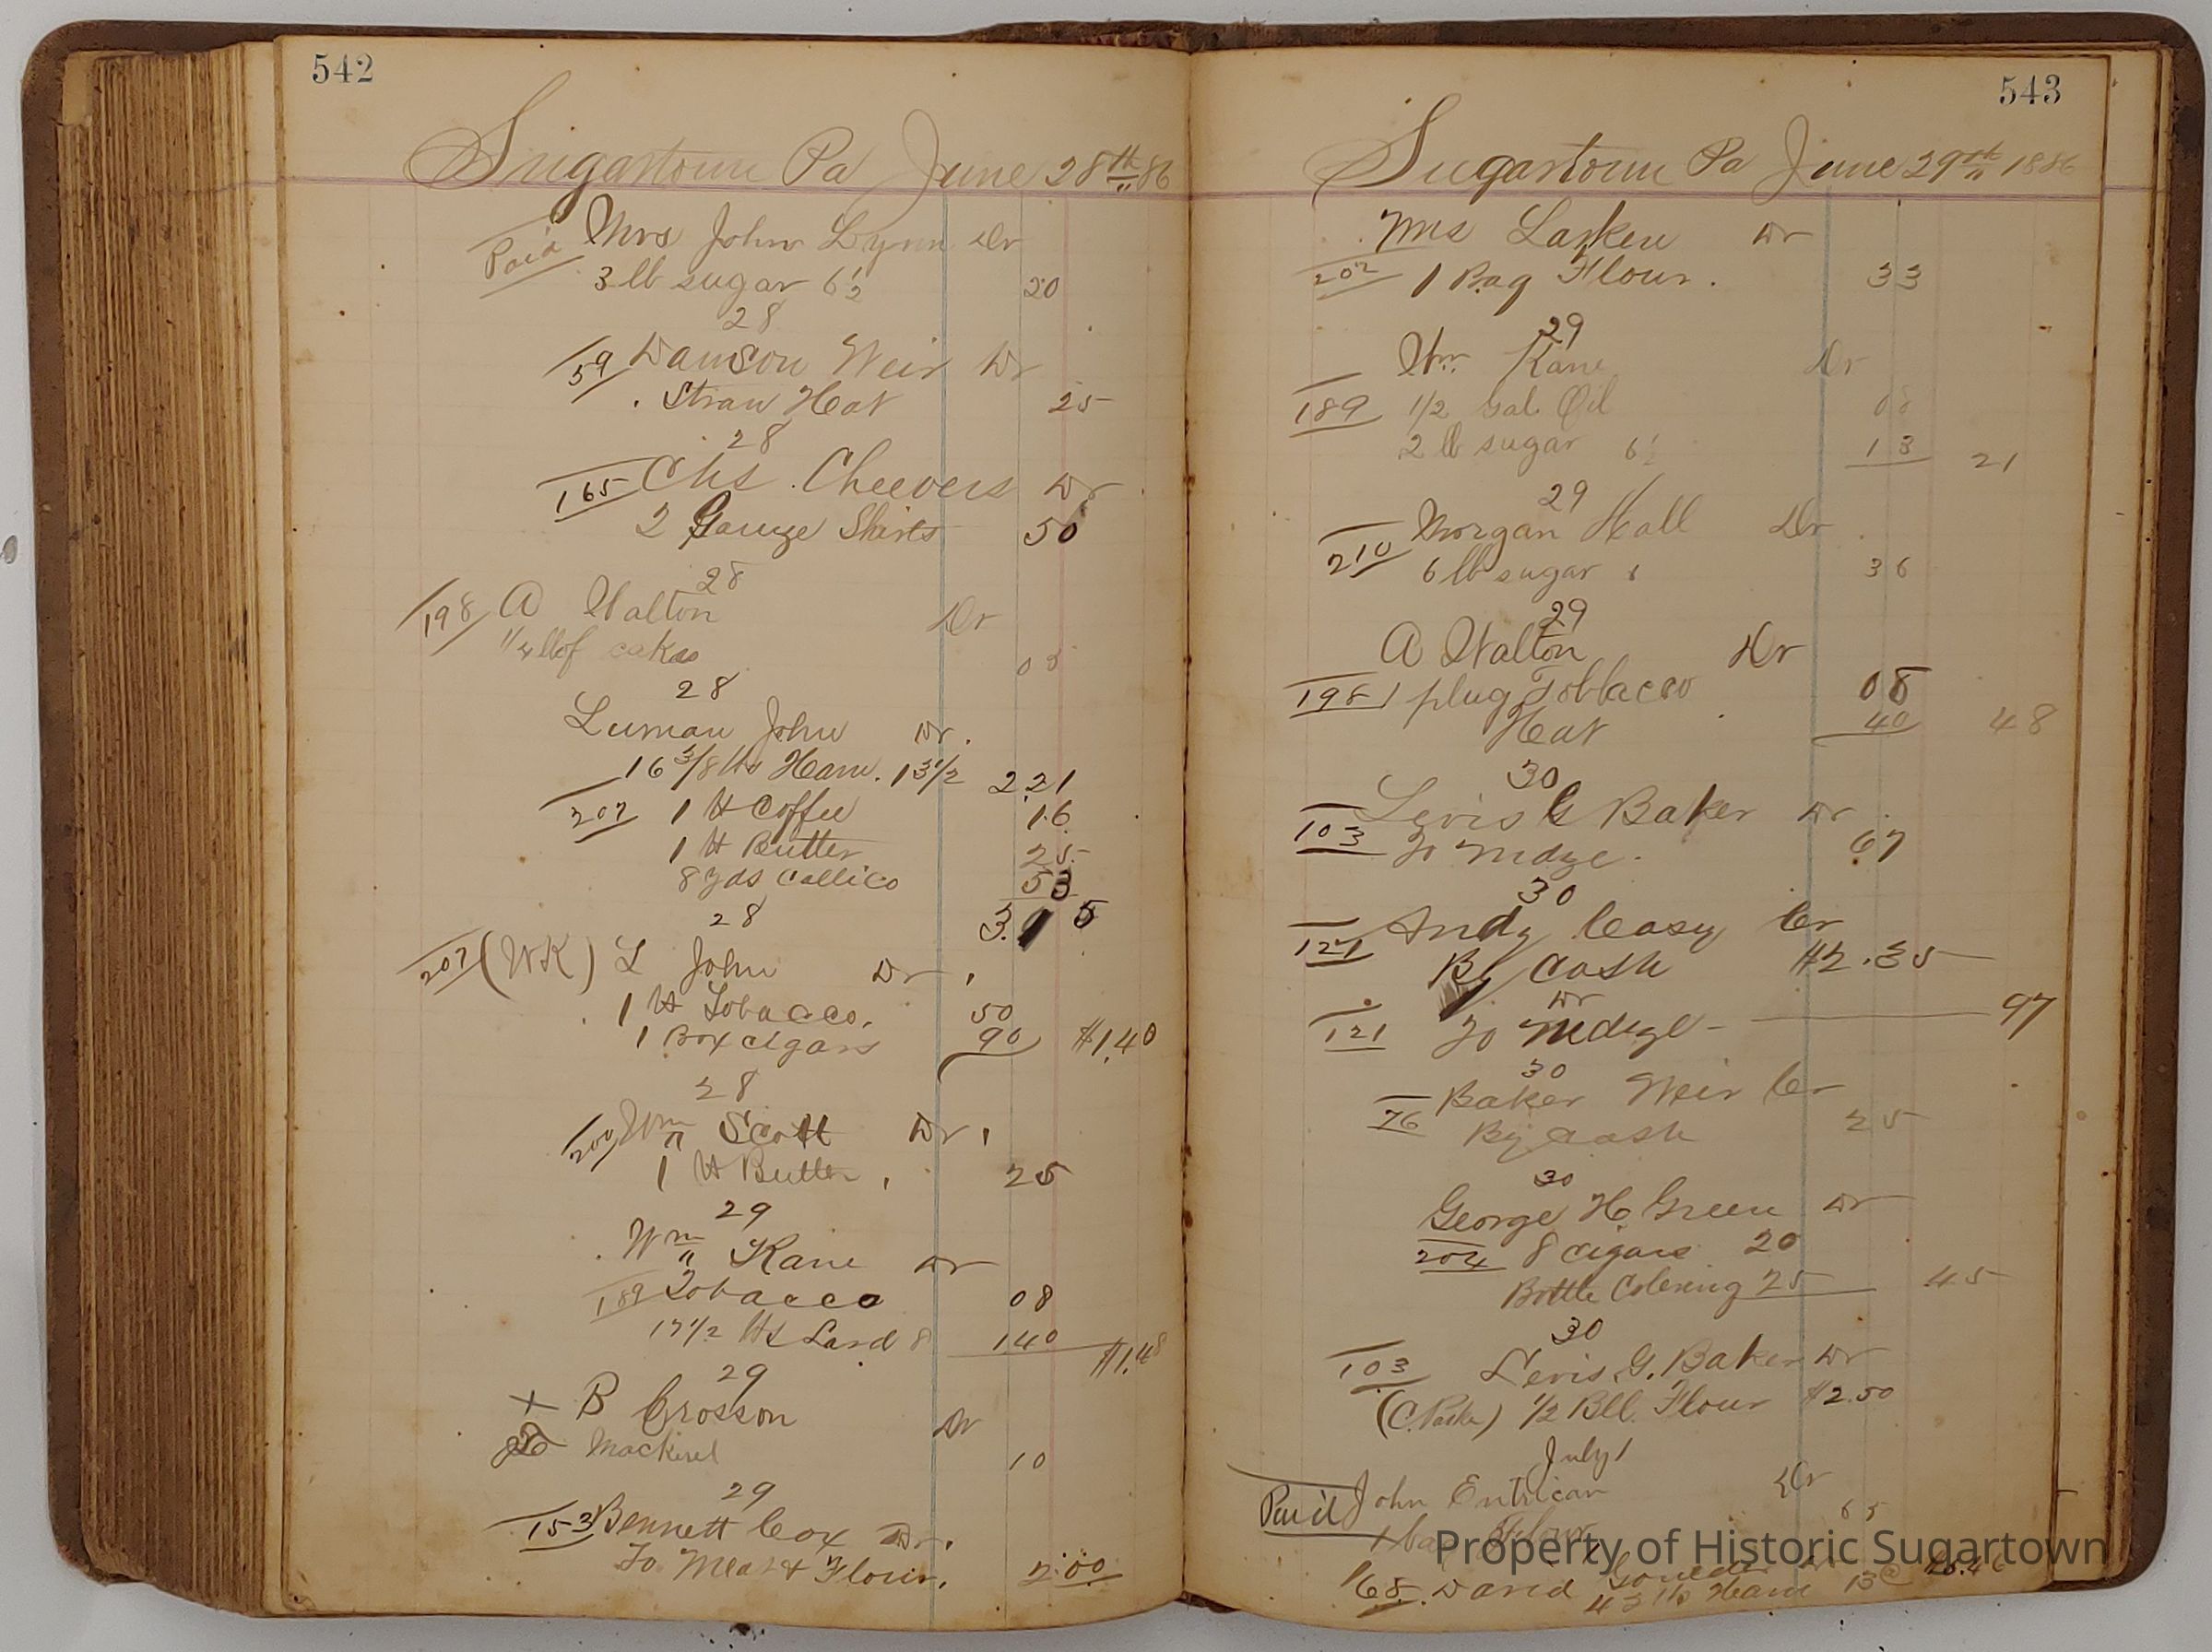 542
Sugartown Pa June 28th 86
Paid Mrs John Lynn Dr
3 lb sugar 6½ 20
28
59 Dawson Weir Dr
Straw Hat 25
28
165 Chs. Cheevers Dr
2 Gauze Shirts 50
28
198 A Walton Dr
1/4 lb of cakes 05
28
Luman John Dr.
16 3/8 lbs Ham. 13 1/2 2.21
207 1 lb Coffee 16
1 lb Butter 25
8 yds Callico 53
3.15
28
207 (WK) L John Dr
1 lb Tobacco, 50
1 Box cigars 90 $1.40
28
200 Wm Scott Dr
1 lb Butter 25
29
Wm Kane Dr
189 Tobacco 08
17 1/2 lbs Lard 8 140 $1.48
29
+ B Crosson Dr
Mackirel 10
29
153 Bennett Cox Dr.
To Meat & Flour, 2.00
543
Sugartown Pa June 29th 1886
Mrs Larken Dr
207 1 Bag Flour. 33
29
Wm Kane Dr
189 1/2 Gal Oil 08
2 lb sugar 6½ 13 21
29
210 Morgan Hall Dr
6 lb sugar 6 36
29
A Walton Dr
198 1 plug Tobbacco 08
Hat 40 48
30
Levis G Baker Dr
103 To mdze. 67
30
121 Andy Casey Cr
By Cash $2.35
Dr
121 To Mdze - 97
30
76 Baker Weir Cr
By Cash 25
30
George H. Green Dr
204 8 cigars 20
Bottle Colering 25 45
30
103 Levis. G. Baker Dr
(C. Parke) 1/2 Bll. Flour $2.50
July 1
Paid John Entrican Dr
1 bag Flour 65
168 David Dr
43 lbs Ham 13@
Property of Historic Sugartown